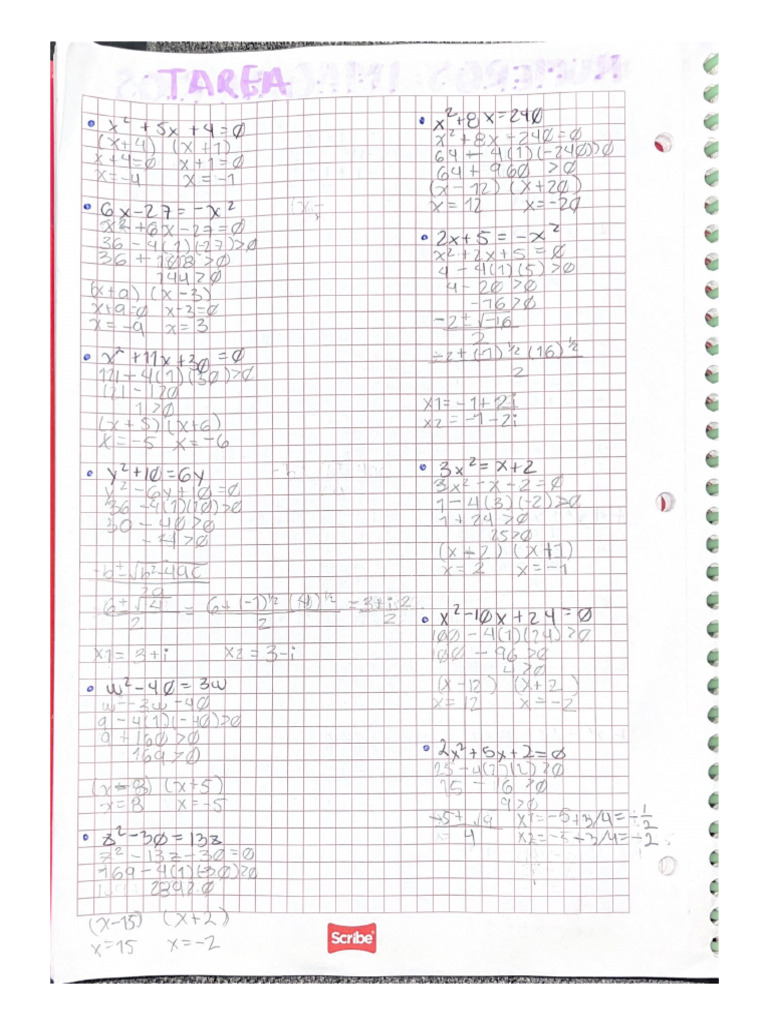 TAREA
• x² + 5x + 4 = 0
(x+4) (x+1)
x+4=0 x+1=0
x=-4 x=-1
• 6x-27=-x²
x²+6x-27=0
36-4(1)(-27)>0
36 + 108>0
144>0
(x+9) (x-3)
x+9=0 x-3=0
x=-9 x=3
• x²+11x+30=0
121-4(1)(30)>0
121-120
1>0
(x+5)(x+6)
x=-5 x=-6
• y²+10=6y
y²-6y+10=0
36-4(1)(10)>0
30-40>0
-4>0
-b±√b²-4ac
2a
6±√4
2
= 6+(-1)^½ (4)^½
2
= 3+i2
2
x1=3+i x2=3-i
• w²-40=3w
w-3w-40
9-4(1)(-40)>0
9+160>0
169>0
(x-8) (x+5)
x=8 x=-5
• z²-30=13z
z²-13z-30=0
169-4(1)(-30)>0
(x-15) (x+2)
x=15 x=-2
• x²+8x=240
x²+8x-240=0
64-4(1)(-240)>0
64+960>0
(x-12) (x+20)
x=12 x=-20
• 2x+5=-x²
x²+2x+5=0
4-4(1)(5)>0
4-20>0
-16>0
-2±√-16
2
-2±(-1)^½(16)^½
2
x1=-1+2i
x2=-1-2i
• 3x²=x+2
3x²-x-2=0
1-4(3)(-2)>0
1+24>0
25>0
(x-2) (x+1)
x=2 x=-1
• x²-10x+24=0
100-4(1)(24)>0
100-96>0
4>0
(x-12) (x+2)
x=12 x=-2
• 2x²+5x+2=0
25-4(2)(2)>0
25-16>0
9>0
-5±√9
4
x1=-5+3/4=-1/2
x2=-5-3/4=-2
Scribe